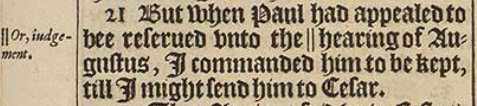 21 But when Paul had appealed to
|| Or, iudge-
ment.
bee reserued vnto the || hearing of Au-
gustus, I commanded him to be kept,
till I might send him to Cesar.